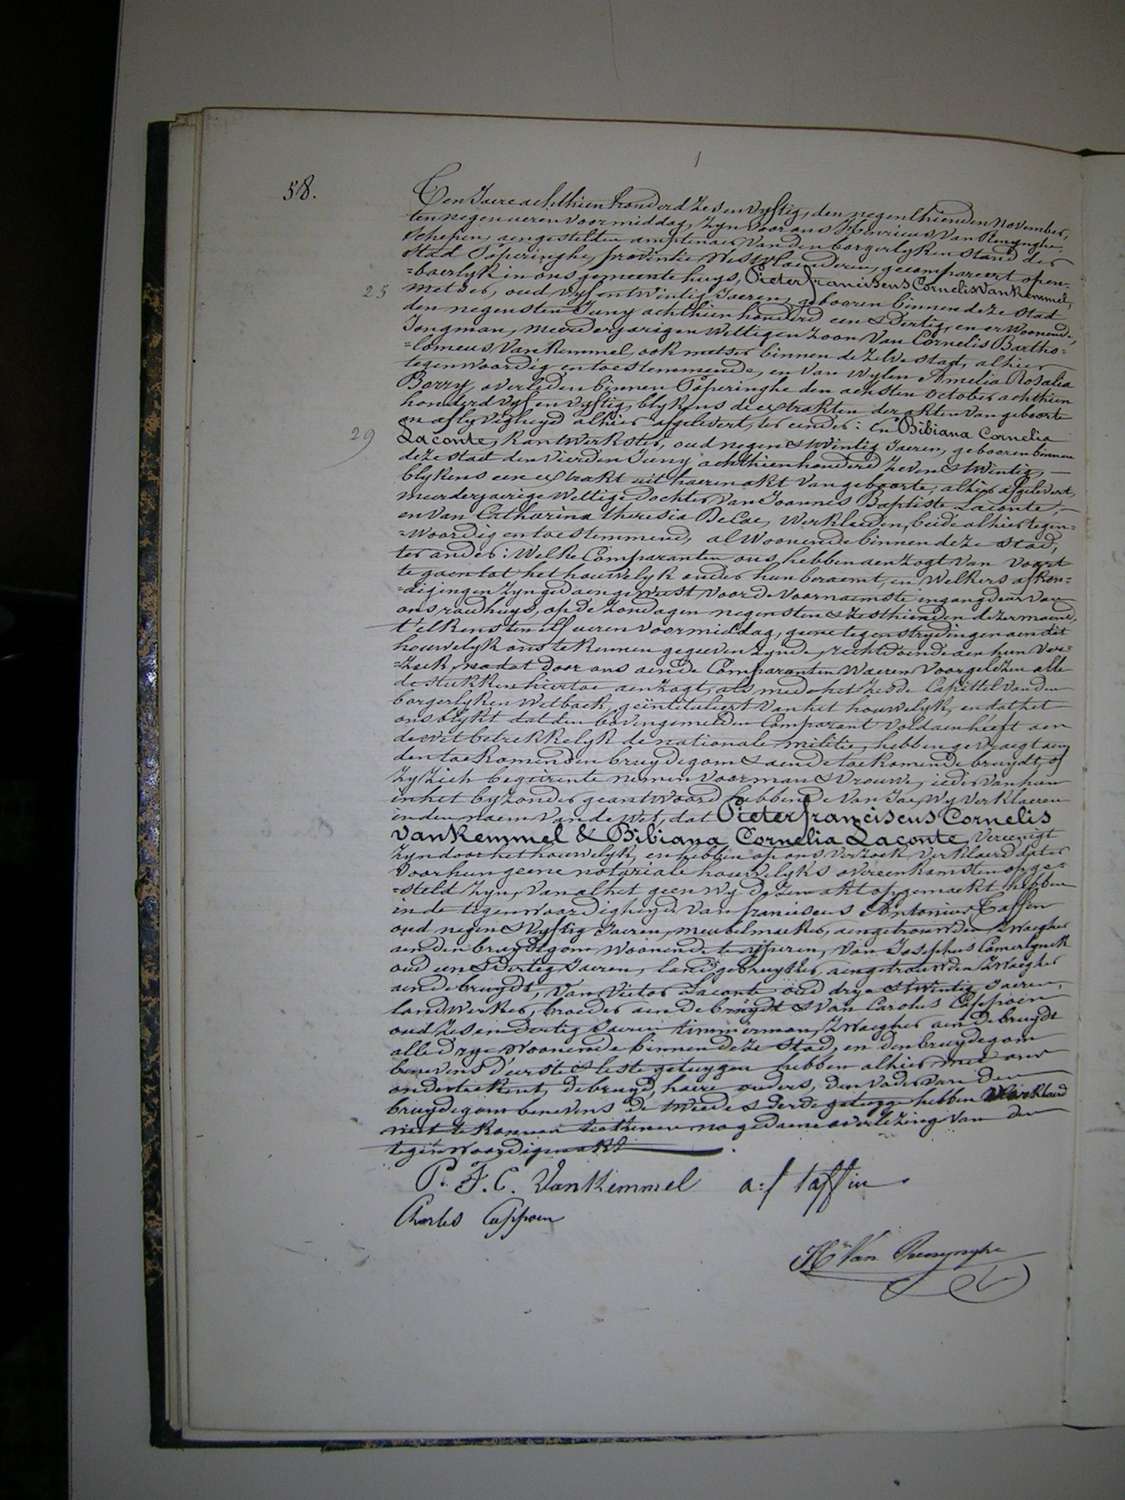 58.
Ten Jaere achthien honderd zes en vyftig, den negenthienden November,
ten negen ueren voormiddag, zyn voor ons Henricus Van Renynghe
schepen, aengestelden amptenaer van den borgerlyken stand der
stad Poperinghe, provintie Westvlaenderen, gecompareert open-
=baerlyk in ons gemeente huys, Pieter franciscus Cornelis Van Kemmel,
25 metser, oud vyf en twintig Jaeren, geboren binnen deze stad
den negensten Juny achthien honderd een & dertig, en er woonende,
Jongman, meerderjarigen wettigen zoon van Cornelis Bartho=
=lomeus Van Kemmel, ook metser binnen de zelve stad, alhier
tegenwoordig en toestemmende, en van wylen Amelia Rosalia
Borry, overleden binnen Poperinghe den achsten october achthien
honderd vyf en vyftig, blykens de extrakten der akten van geboorte
en aflyvigheyd alhier afgelevert, ter eender: En Bibiana Cornelia
29 Laconte, kantwerkster, oud negen & twintig Jaeren, geboren binnen
deze stad den vierden Juny achthien honderd zeven & twintig, —
blykens een extrakt uit haeren akt van geboorte, alhier afgelevert,
meerderjarige wettige dochter van Joannes Baptiste Laconte, —
en van Catharina Theresia De Cae, werklieden, beide alhier tegen=
=woordig en toestemmend, al woonende binnen deze stad,
ter ander: Welke Comparanten ons hebben aenzogt van voort
te gaen tot het houwelyk onder hun beraemt, en welkers afkon=
=digingen zyn gedaen geweest voor de voornaemste ingangdeur van
ons raedhuys, op de zondagen negensten & zesthienden dezer maend,
t'elkens ten elf ueren voormiddag, geene tegenstrydingen aen dit
houwelyk ons te kennen gegeven zynde, rechtdoende aen hun ver=
=zoek, nadat door ons aen de Comparanten waeren voorgelezen alle
de stukken hiertoe aenzogt, als mede het zesde Capittel van den
borgerlyken Wetboek, geïntituleert van het houwelyk, en dat het
ons blykt dat den bovengemelden Comparant voldaen heeft aen
de wet betrekkelyk de nationale militie, hebben gevraegt aen
den toekomenden bruydegom & aen de toekomende bruydt, of
zy zich begeirente nemen voor man & vrouwe, ieder van hun
in het byzonder geantwoord hebbende van Ja, Wy verklaeren
in den naem van de wet, dat Pieter franciscus Cornelis
Van Kemmel & Bibiana Cornelia Laconte, vereenigt
zyn door het houwelyk, en hebben op ons verzoek verklaerd dat er
voor hun geene notariale houwelyks overeenkomsten opge=
=steld zyn, van al het geen wy dezen akt opgemaekt hebben
in de tegenwoordigheyd van franciscus Antonius Taffin
oud negen & vyftig Jaeren, meubelmaker, aengetrouwden zwaegher
aen den bruydegom, woonende te Ypren, van Josephus Camerlynck
oud een & dertig Jaeren, landsgebruyker, aengetrouwden zwaegher
aen de bruydt, van Victor Laconte oud drye & twintig Jaeren,
landwerker, broeder aen de bruydt & van Carolus Cappoen
oud zes en dertig Jaeren timmerman, zwaegher aen de bruydt
alle drye woonende binnen deze stad, en den bruydegom
benevens d'eerste & leste getuygen hebben alhier met ons
onderteekent, de bruyd, haere ouders, den vader van den
bruydegom benevens de tweede & derde getuyge hebben verklaerd
niet te konnen teekenen na gedaene overlezing van den
tegenwoordigen akt.
P. F. C. VanKemmel a: f taffin
Charles Cappoen
H. Van Renynghe